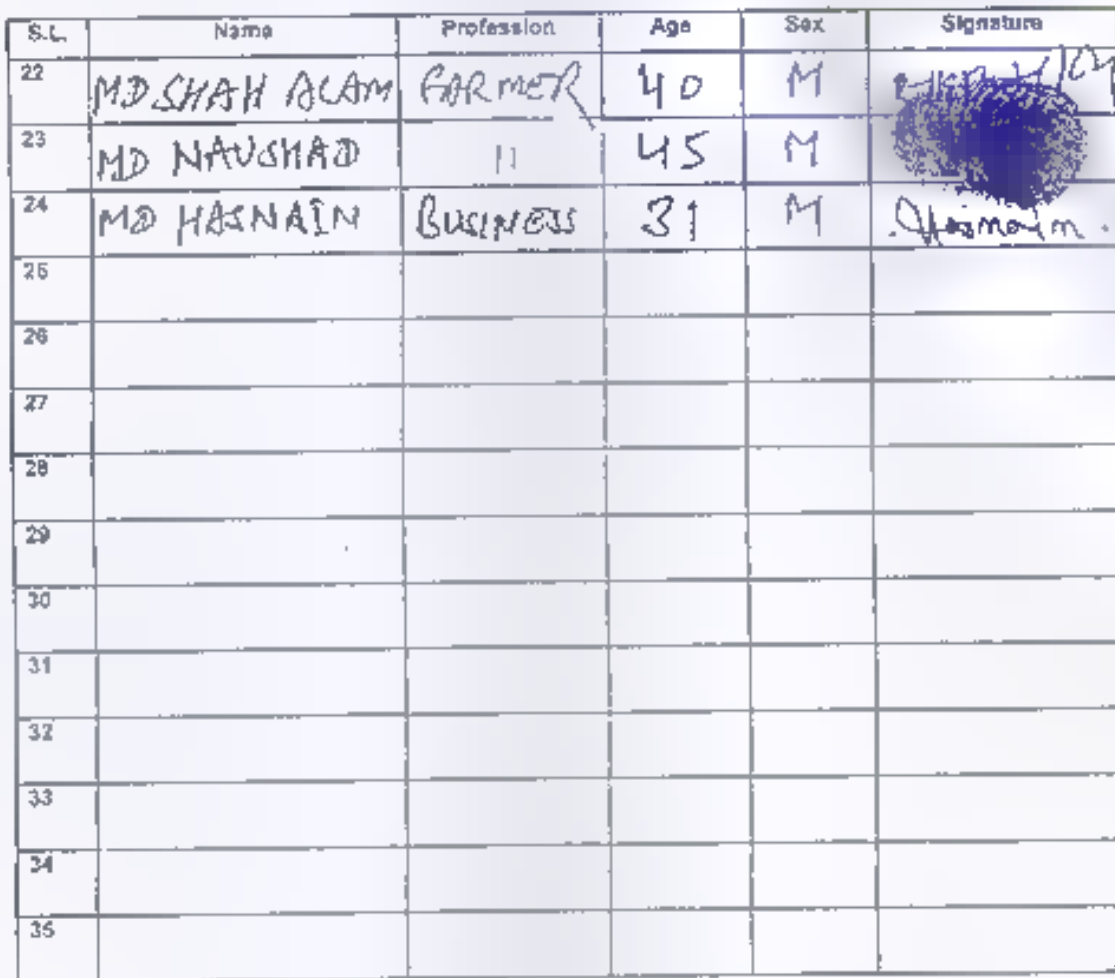 S.L. Name Profession Age Sex Signature
22 MD SHAH ALAM FARMER 40 M
23 MD NAUSHAD 11 45 M
24 MD HASNAIN BUSINESS 31 M Hasnain
25
26
27
28
29
30
31
32
33
34
35